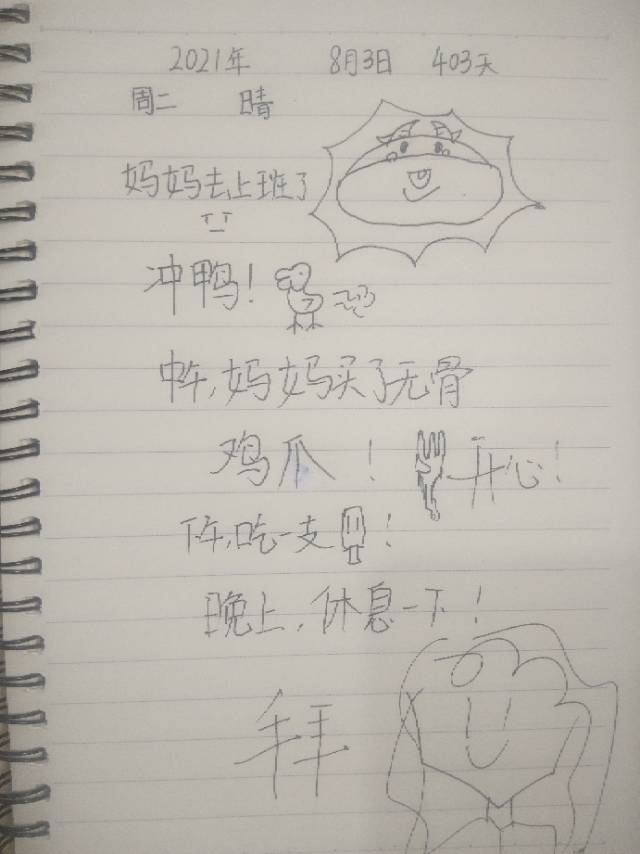 2021年 8月3日 403天
周二 晴
妈妈去上班了
冲鸭！
中午，妈妈买了无骨
鸡爪！ 开心！
下午，吃一支！
晚上，休息一下！
拜